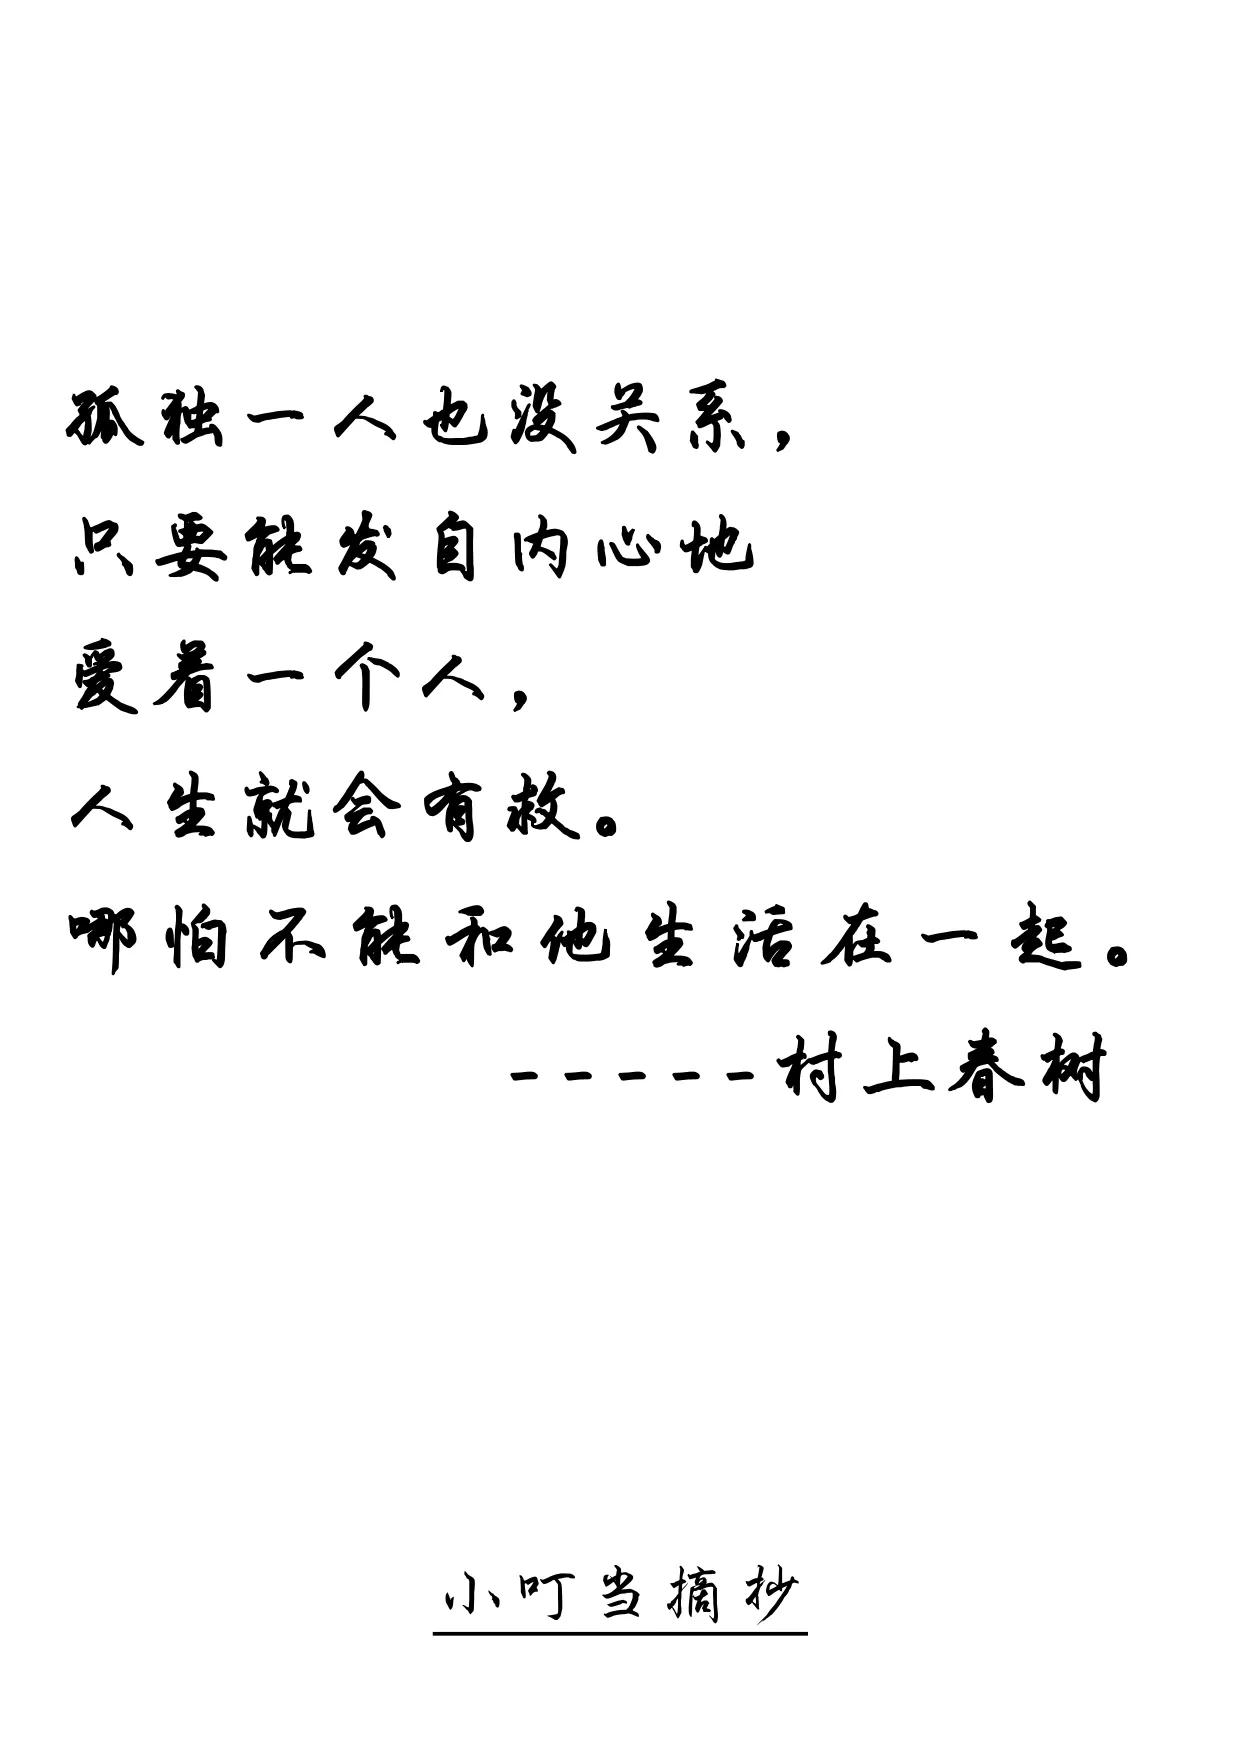 孤独一人也没关系，
只要能发自内心地
爱着一个人，
人生就会有救。
哪怕不能和他生活在一起。
-----村上春树
小叮当摘抄